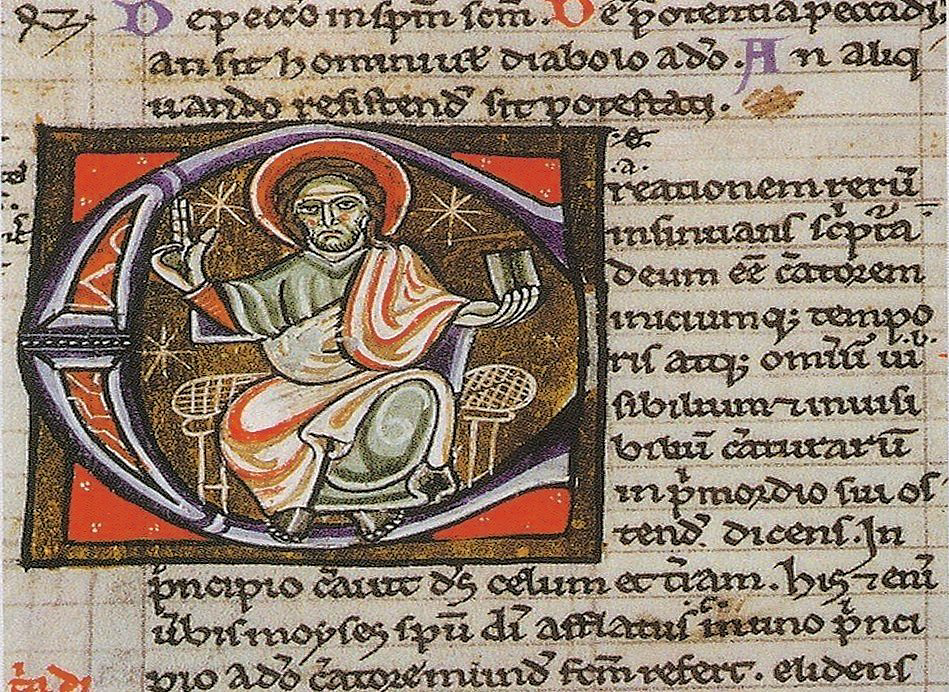 De peccō in spm̄ scm̄. De p̄otentia peccādi
an sit homini uł diabolo a dō. An aliq
uando resistend̄ sit potestati.
reationem rerū
insinuans sc̄pt̄a
deum eē c̄atorem
iniciumq; tempo
ris atq; omīū ui
sibilium ⁊ inuisi
biliū c̄aturarū
in p̄mordio sui os
tend̄. dicens. In
p̄ncipio c̄auit ds̄ celum et t̄ram. His ⁊ enī
ūbis moyses spū di̅ afflatus in uno p̄nci
pio a dō c̄atore mund̄ fc̄m refert. elidens